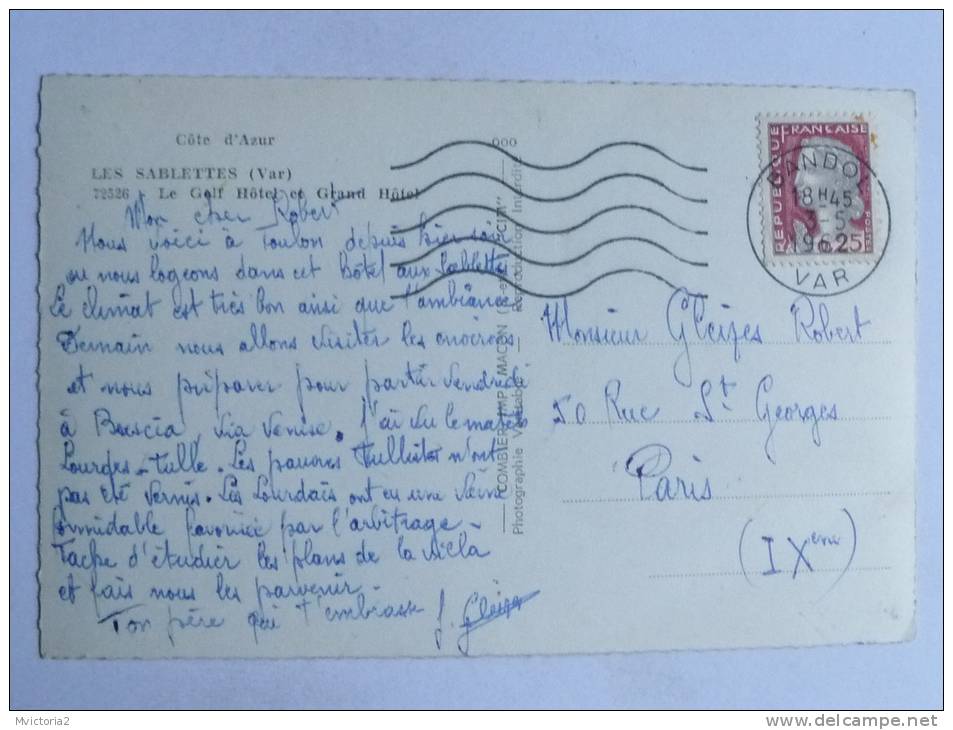 Côte d'Azur
LES SABLETTES (Var)
72526 Le Golf Hôtel et Grand Hôtel
Mon cher Robert
Nous voici à Toulon depuis hier soir
ou nous logeons dans cet hôtel aux Sablettes
Le climat est très bon ainsi que l'ambiance
Demain nous allons visiter les
et nous préparer pour partir vendredi
à Brescia, via Venise. J'ai vu le match
Lourdes-Tulle. Les pauvres Tullistes n'ont
pas été vernis. Les Lourdais ont eu une veine
formidable favorisée par l'arbitrage -
Tache d'étudier les plans de la villa
et fais nous les parvenir -
Ton père qui t'embrasse J. Gleizes
ooo
COMBIER IMP. MACON
Photographie Véritable - Reproduction Interdite
REPUBLIQUE FRANÇAISE
POSTES
0,25
BANDOL
18H45
3-5
1962
VAR
Monsieur Gleizes Robert
50 Rue St Georges
Paris
(IXeme)
Mvictoria2
delcampe.net